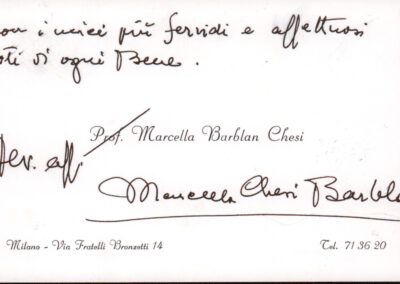 con i miei più fervidi e affettuosi
voti di ogni Bene.
Prof. Marcella Barblan Chesi
Dev. aff.
Marcella Chesi Barbla
Milano - Via Fratelli Bronzetti 14
Tel. 71 36 20